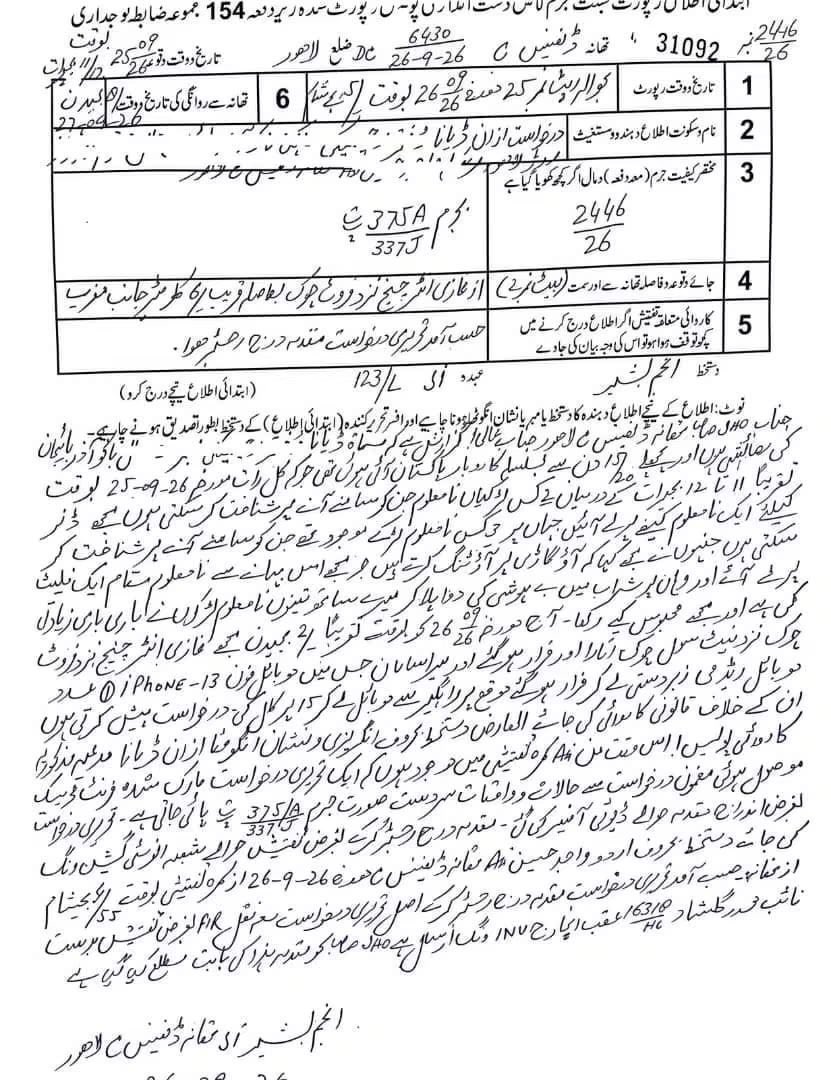 ابتدائی اطلاعی رپورٹ نسبت جرم قابل دست اندازی پولیس رپورٹ شدہ زیر دفعہ 154 مجموعہ ضابطہ فوجداری
نمبر 2446/26 31092 تھانہ ڈیفنس C 6430/26-9-26 DC ضلع لاہور تاریخ و وقت وقوعہ 25-09/26 بوقت
1 تاریخ و وقت رپورٹ بحوالہ رپٹ نمبر 25 مورخہ 26-09/26 بوقت 6 تھانہ سے روانگی کی تاریخ و وقت 27-09-26
2 نام و سکونت اطلاع دہندہ و مستغیث درخواست ازان ڈیانا
3 مختصر کیفیت جرم (معہ دفعہ) و مال اگر کچھ کھویا گیا ہے 2446/26 بجرم 375A/337J ت پ
4 جائے وقوعہ و فاصلہ تھانہ سے اور سمت از غازی انٹرچینج نزد فروٹ چوک بفاصلہ قریب کلومیٹر جانب مغرب
5 کاروائی متعلقہ تفتیش اگر اطلاع درج کرنے میں کچھ توقف ہوا ہو تو اس کی وجہ بیان کی جاوے حسب آمد تحریری درخواست مقدمہ درج رجسٹر ہوا۔
دستخط انجم بشیر عہدہ 123/L (ابتدائی اطلاع نیچے درج کرو)
نوٹ: اطلاع کے نیچے اطلاع دہندہ کا دستخط یا مہر یا نشان انگوٹھا ہونا چاہیے اور افسر تحریر کنندہ (ابتدائی اطلاع) کے دستخط بطور تصدیق ہونے چاہیے۔
جناب SHO صاحب تھانہ ڈیفنس C لاہور جناب عالی! گزارش ہے کہ مسماۃ ڈیانا باکو آذربائیجان
کی رہائشی ہوں اور پچھلے 15/20 دن سے بسلسلہ کاروبار پاکستان آئی ہوئی تھی جو کہ کل رات مورخہ 26-09-25 بوقت
تقریباً 11 تا 12 بجے رات کے درمیان نامعلوم جن کو سامنے آنے پر شناخت کر سکتی ہوں مجھے ڈنر
کیلئے ایک نامعلوم کیفے پر لے آئیں جہاں پر 3 کس نامعلوم لڑکے موجود تھے جن کو سامنے آنے پر شناخت کر
سکتی ہوں جنہوں نے مجھے کہا کہ آؤ گاڑی پر آؤٹنگ کرتے ہیں جو مجھے اس بہانے سے نامعلوم مقام ایک فلیٹ
پر لے آئے اور وہاں پر شراب میں بے ہوشی کی دوا پلا کر میرے ساتھ تینوں نامعلوم لڑکوں نے باری باری زیادتی
کی ہے اور مجھے محبوس کیے رکھا۔ آج مورخہ 26-09/26 کو بوقت تقریباً 2/- بجے دن مجھے غازی انٹرچینج نزد فروٹ
چوک نزد نیٹ سول چوک اتارا اور فرار ہو گئے اور میرا سامان جس میں موبائل فون iPHONE-13 ① عدد
موبائل ریڈمی زبردستی لے کر فرار ہو گئے موقع پر راہگیر سے موبائل لے کر 15 پر کال کی۔ درخواست پیش کرتی ہوں
ان کے خلاف قانونی کاروائی کی جائے العارض دستخط بحروف انگریزی و نشان انگوٹھا ازان ڈیانا مدعیہ مذکوریہ
کاروائی پولیس! اس وقت میں ASI کمرہ تفتیشی میں موجود ہوں کہ ایک تحریری درخواست مارک شدہ فرنٹ ڈیسک
موصول ہوئی مضمون درخواست سے حالات و واقعات سر دست صورت جرم 375/A/337J ت پ پائی جاتی ہے۔ تحریری درخواست
بغرض اندراج مقدمہ حوالے ڈیوٹی آفیسر کی گئی۔ مقدمہ درج رجسٹر کر کے بغرض تفتیش حوالے شعبہ انوسٹی گیشن ونگ
کی جائے دستخط بحروف اردو واجد حسین ASI تھانہ ڈیفنس C مورخہ 26-9-26 از کمرہ تفتیشی بوقت
از تھانہ: حسب آمد تحریری درخواست مقدمہ درج رجسٹر کر کے اصل تحریری درخواست معہ نقل FIR بغرض تفتیش بدست
نائب محرر گلشاد 16318/HC عقب انچارج INV ونگ ارسال ہے SHO صاحب کو مقدمہ ہذا کی بابت مطلع کیا گیا ہے
انجم بشیر تھانہ ڈیفنس C لاہور
26-09-26